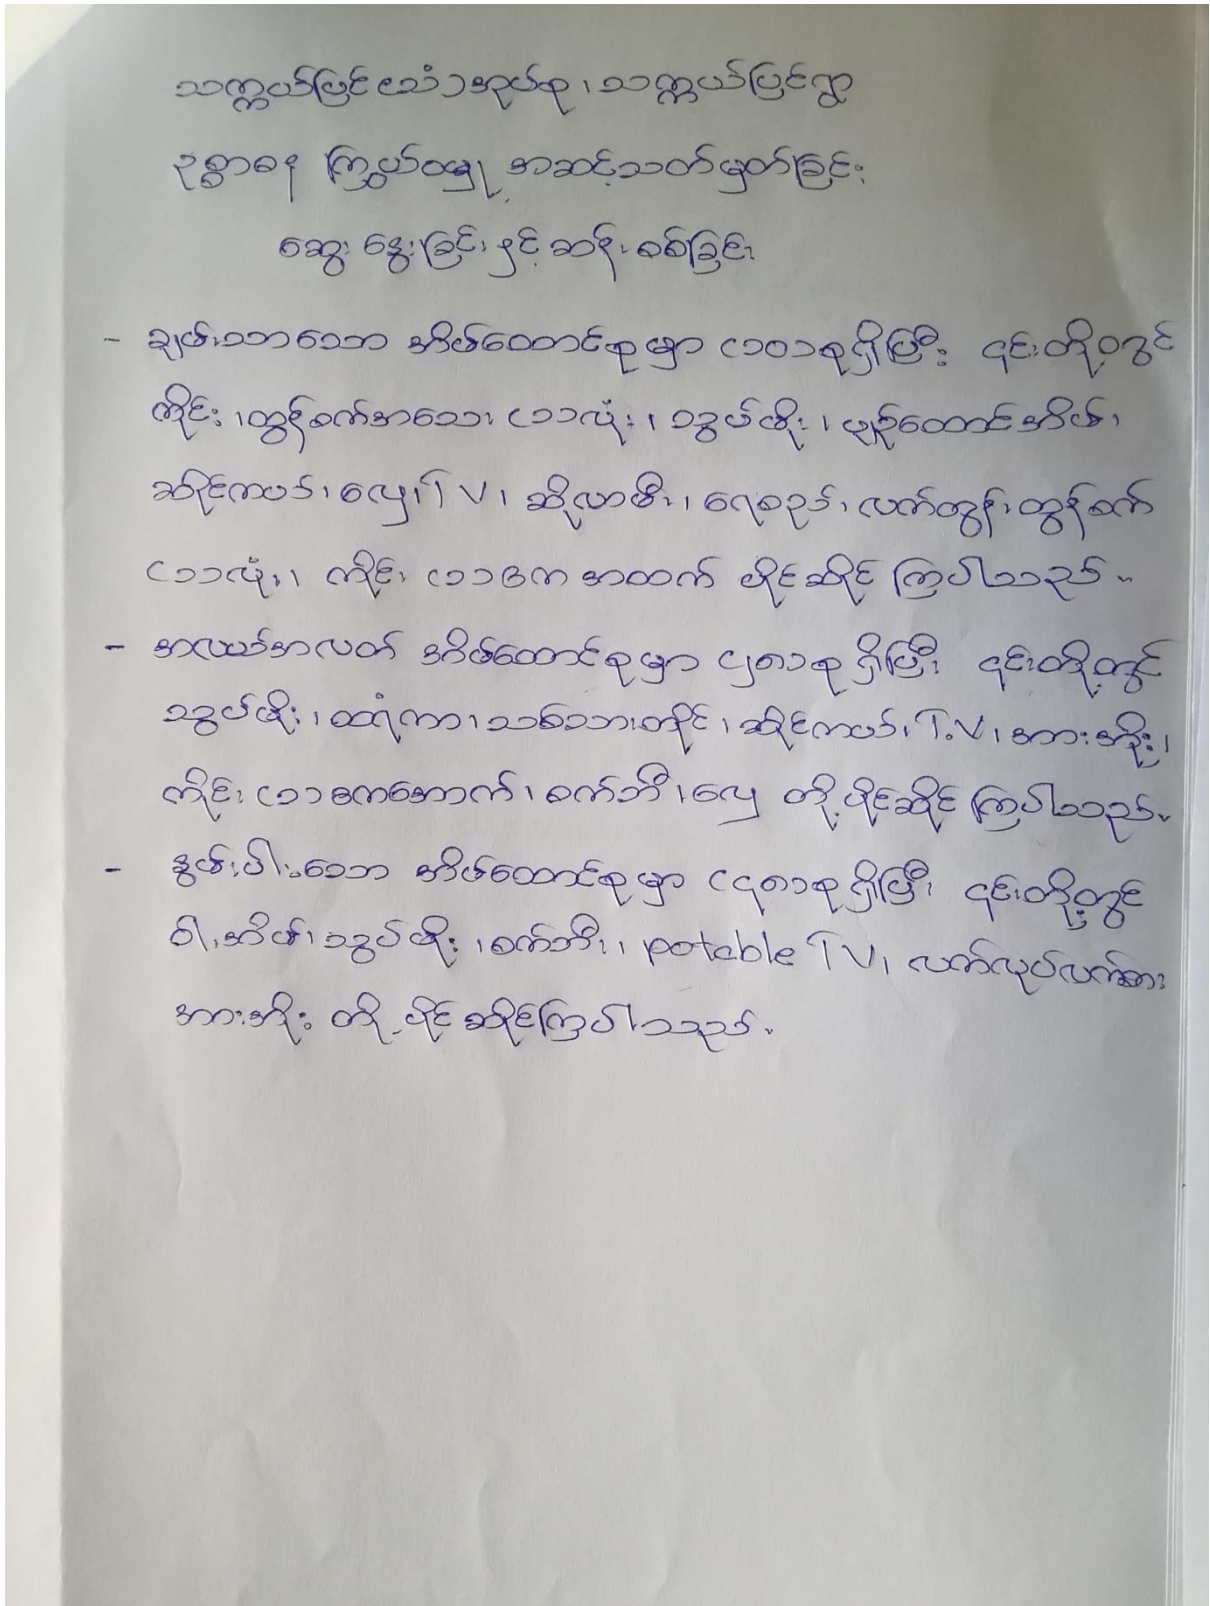 သက္ကယ်ပြင် (သံ) အုပ်စု၊ သက္ကယ်ပြင်ရွာ
ဥစ္စာဓန ကြွယ်ဝမှု အဆင့်သတ်မှတ်ခြင်း
ဆွေး နွေးခြင်း နှင့် ဆန်း စစ်ခြင်း
- ချမ်းသာသော အိမ်ထောင်စုမှာ (၁၀)စုရှိပြီး ၎င်းတို့တွင်
ကိုင်း ၊ ထွန်စက်အသေး (၁)လုံး ၊ သွပ်မိုး ၊ ပျဉ်ထောင်အိမ်၊
ဆိုင်ကယ်၊ လှေ၊ TV ၊ ဆိုလာမီး ၊ ရေစည်၊ လက်တွန်း ထွန်စက်
(၁)လုံး ၊ ကိုင်း (၁)ဧက အထက် ပိုင်ဆိုင် ကြပါသည်။
- အလယ်အလတ် အိမ်ထောင်စုမှာ (၂၈)စု ရှိပြီး ၎င်းတို့တွင်
သွပ်မိုး ၊ ထရံကာ ၊ သစ်သားတိုင် ၊ ဆိုင်ကယ်၊ T.V ၊ အားအိုး ၊
ကိုင်း (၁)ဧကအောက် ၊ စက်ဘီး ၊ လှေ တို့ ပိုင်ဆိုင် ကြပါသည်။
- နွမ်းပါးသော အိမ်ထောင်စုမှာ (၄၈)စုရှိပြီး ၎င်းတို့တွင်
ဝါးအိမ်၊ သွပ်မိုး ၊ စက်ဘီး ၊ potable TV ၊ လက်လုပ်လက်စား
အားအိုး တို့ ပိုင် ဆိုင်ကြပါသည်။